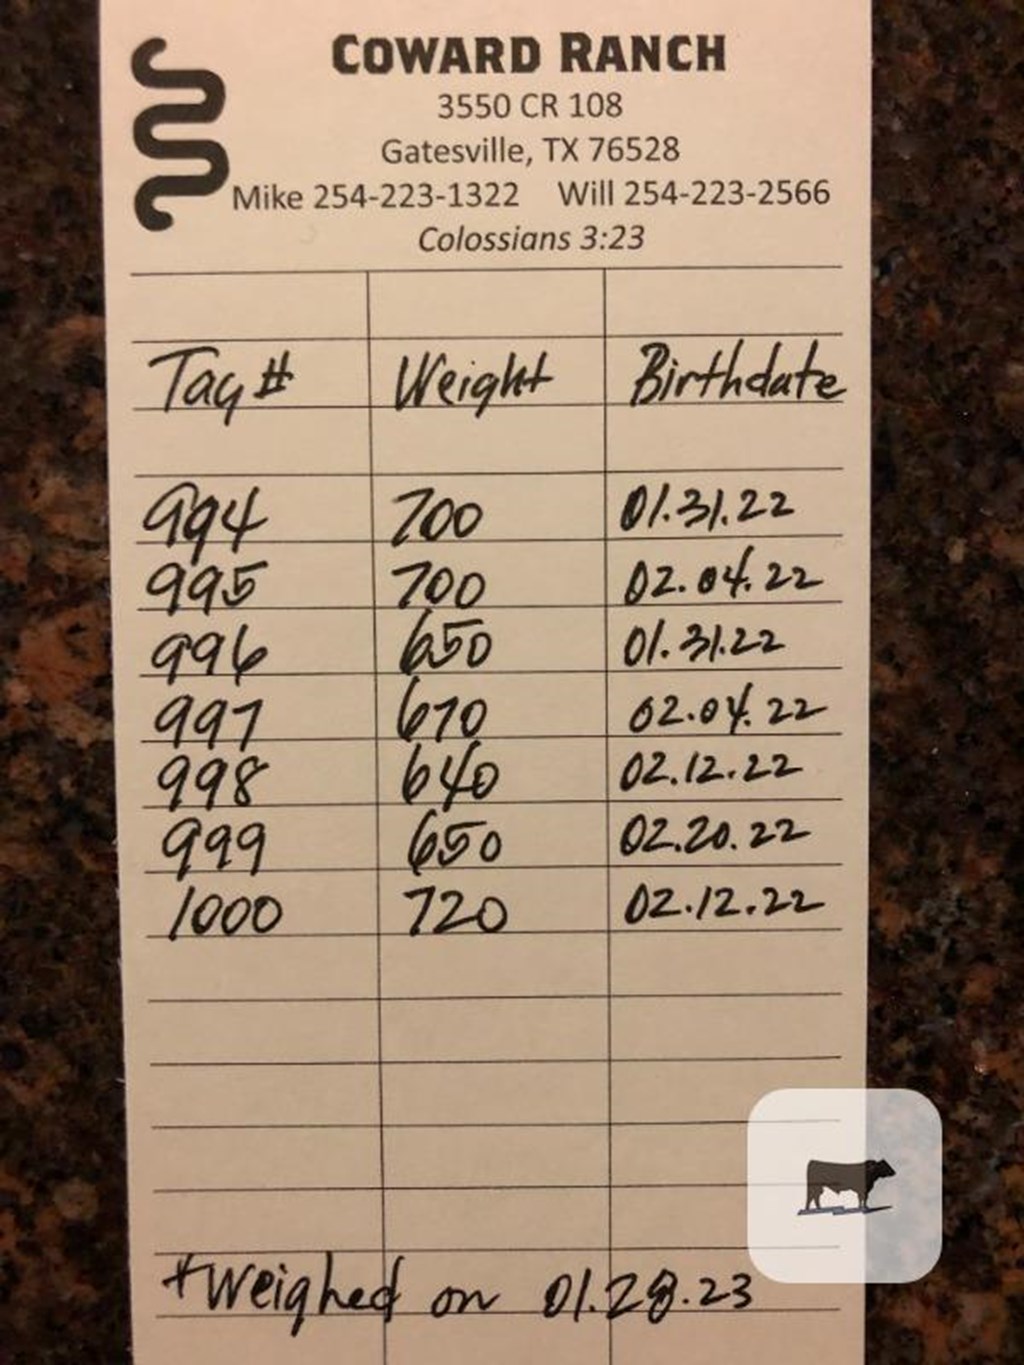 COWARD RANCH
3550 CR 108
Gatesville, TX 76528
Mike 254-223-1322 Will 254-223-2566
Colossians 3:23
Tag # Weight Birthdate
994 700 01.31.22
995 700 02.04.22
996 650 01.31.22
997 670 02.04.22
998 640 02.12.22
999 650 02.20.22
1000 720 02.12.22
*Weighed on 01.28.23